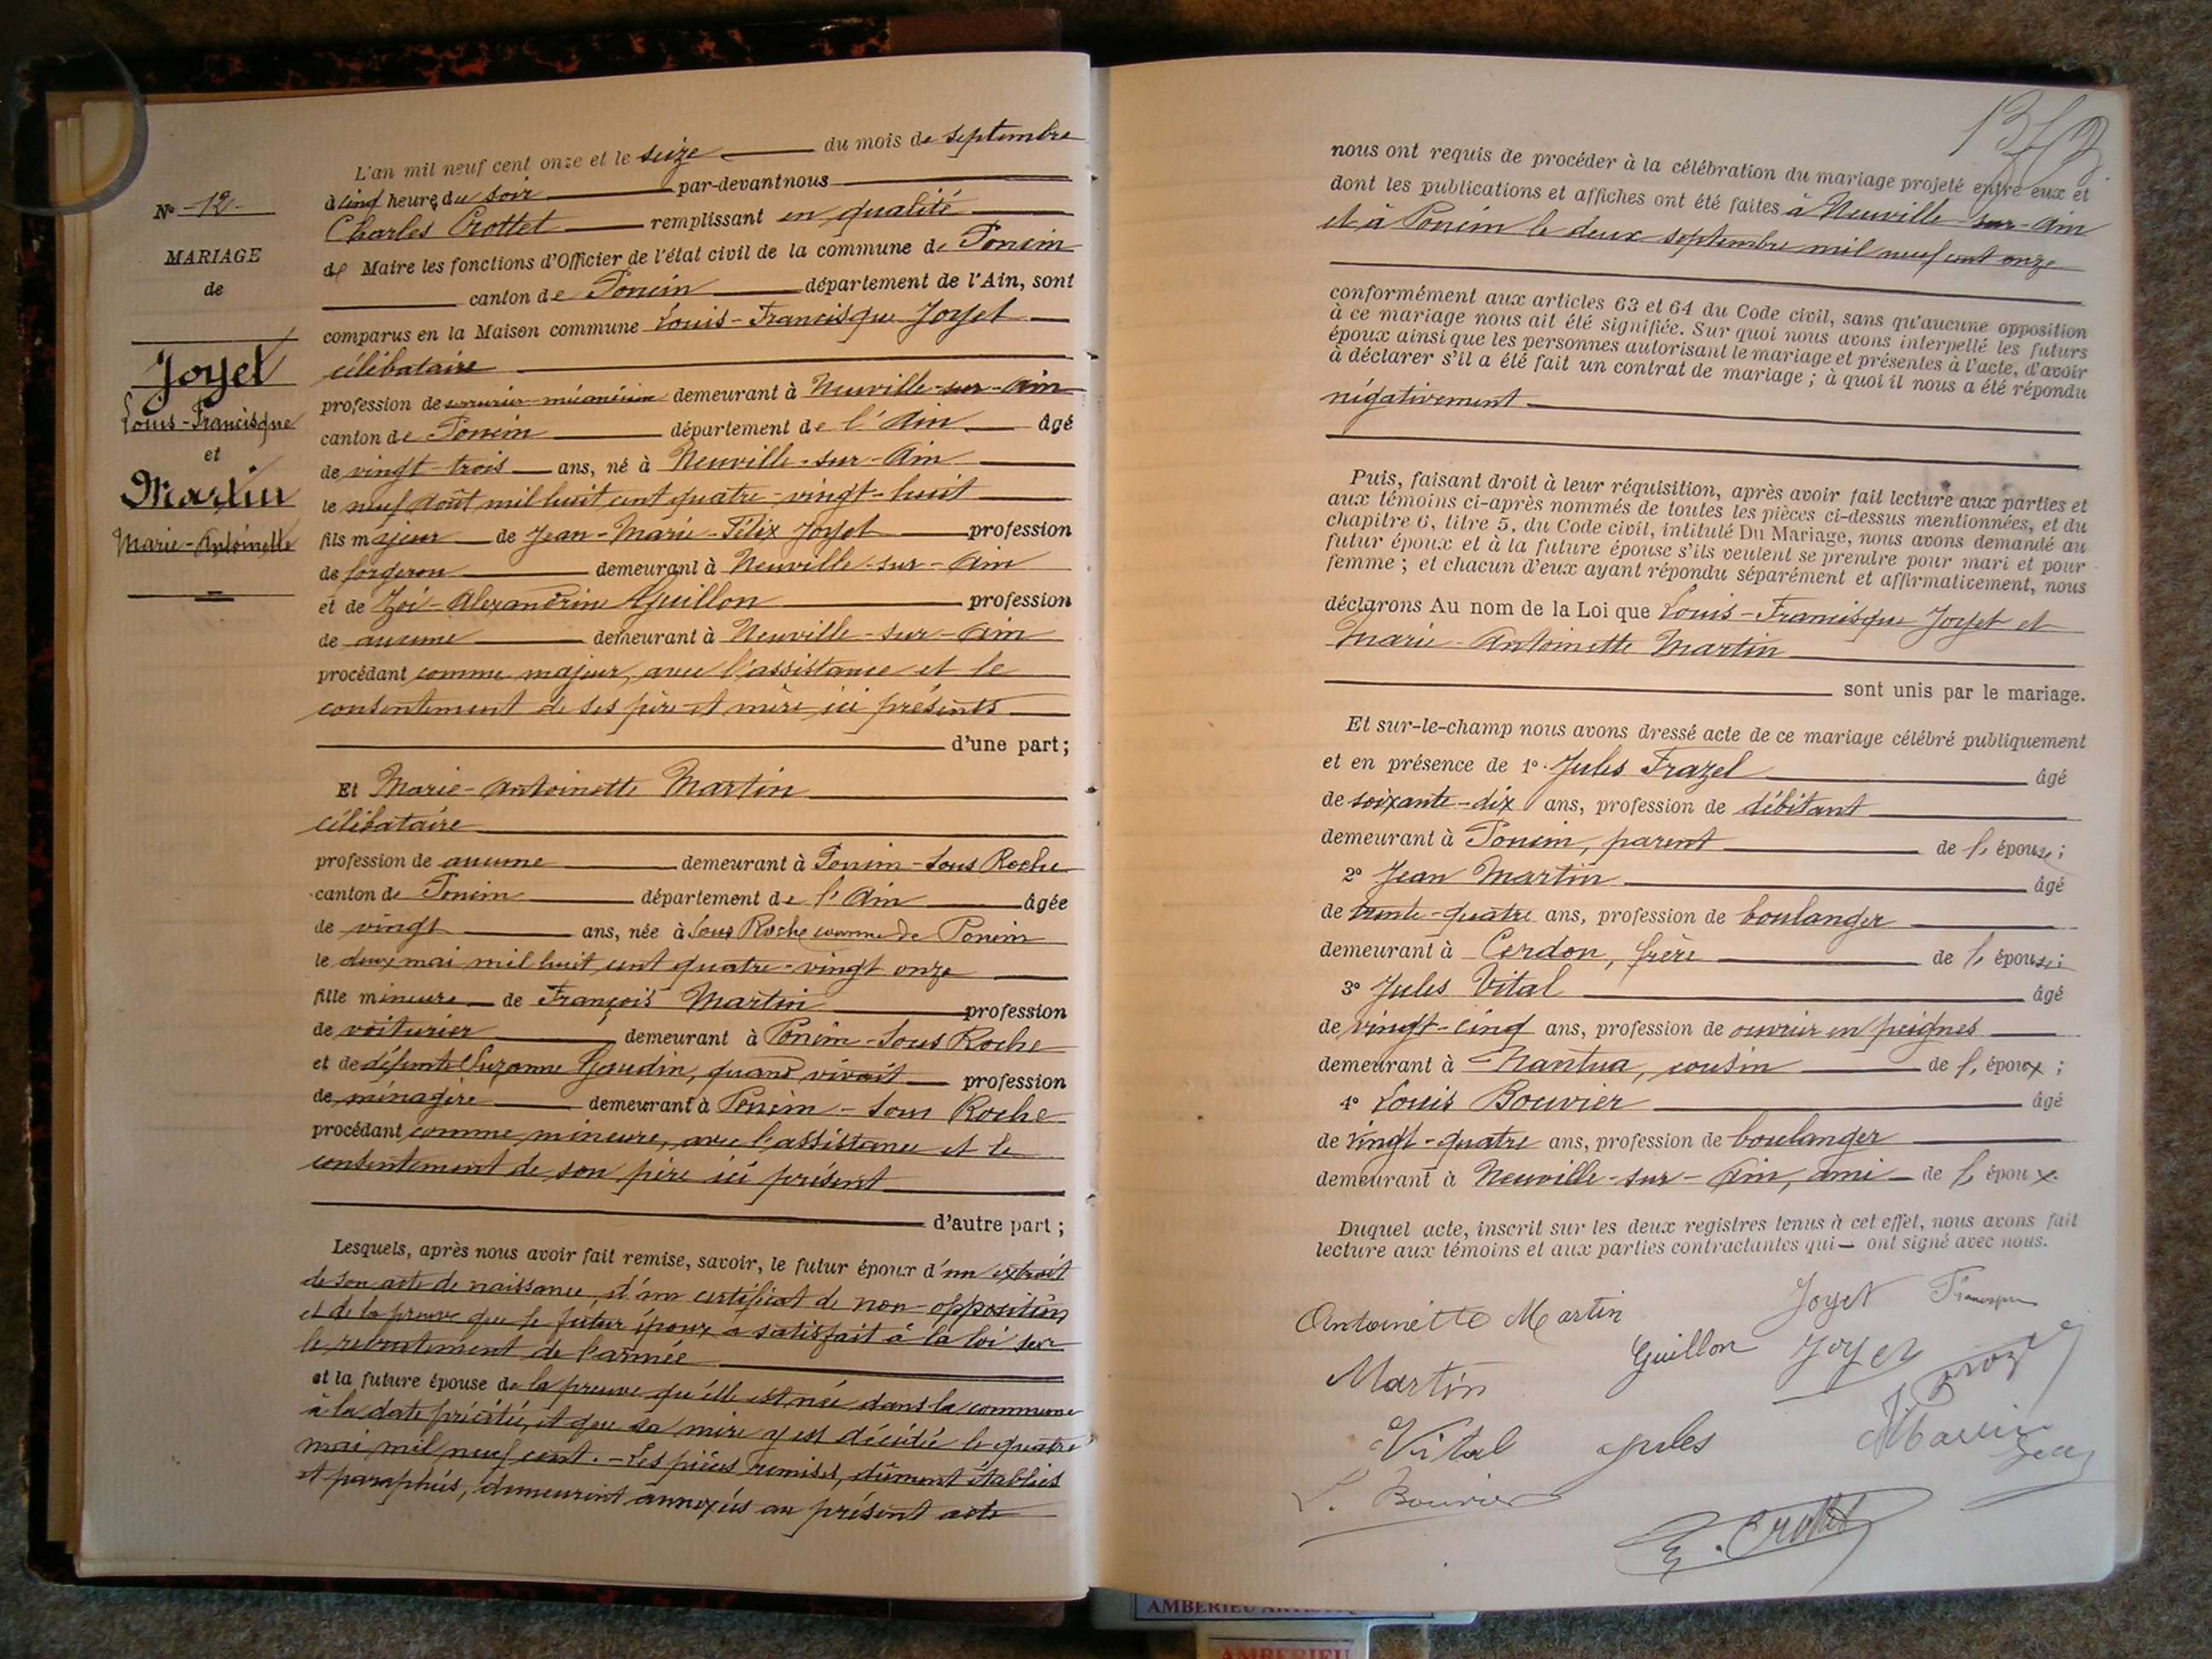 L'an mil neuf cent onze et le seize du mois de septembre
à cinq heures du soir par-devant nous
Charles Crottet remplissant en qualité
de Maire les fonctions d'Officier de l'état civil de la commune de Poncin
canton de Poncin département de l'Ain, sont
comparus en la Maison commune Louis-Francisque Joyet
célibataire
profession de serrurier-mécanicien demeurant à Neuville-sur-Ain
canton de Poncin département de l'Ain âgé
de vingt-trois ans, né à Neuville-sur-Ain
le neuf août mil huit cent quatre-vingt-huit
fils majeur de Jean-Marie-Félix Joyet profession
de forgeron demeurant à Neuville-sur-Ain
et de Zoé-Alexandrine Guillon profession
de aucune demeurant à Neuville-sur-Ain
procédant comme majeur, avec l'assistance et le
consentement de ses père et mère ici présents
d'une part;
Et Marie-Antoinette Martin
célibataire
profession de aucune demeurant à Poncin-Sous Roche
canton de Poncin département de l'Ain âgée
de vingt ans, née à Sous Roche commune de Poncin
le deux mai mil huit cent quatre-vingt onze
fille mineure de François Martin profession
de voiturier demeurant à Poncin-Sous Roche
et de défunte Suzanne Gaudin, quand vivait profession
de ménagère demeurant à Poncin-Sous Roche
procédant comme mineure, avec l'assistance et le
consentement de son père ici présent
d'autre part;
Lesquels, après nous avoir fait remise, savoir, le futur époux d'un extrait
de son acte de naissance, d'un certificat de non-opposition
et de la preuve que le futur époux a satisfait à la loi sur
le recrutement de l'armée
et la future épouse de la preuve qu'elle est née dans la commune
à la date précitée, et que sa mère y est décédée le quatre
mai mil neuf cent. - Les pièces remises, dûment établies
et paraphées, demeurent annexées au présent acte
No 12
MARIAGE
de
Joyet
Louis-Francisque
et
Martin
Marie-Antoinette
13
nous ont requis de procéder à la célébration du mariage projeté entre eux et
dont les publications et affiches ont été faites à Neuville-sur-Ain
et à Poncin le deux septembre mil neuf cent onze
conformément aux articles 63 et 64 du Code civil, sans qu'aucune opposition
à ce mariage nous ait été signifiée. Sur quoi nous avons interpellé les futurs
époux ainsi que les personnes autorisant le mariage et présentes à l'acte, d'avoir
à déclarer s'il a été fait un contrat de mariage; à quoi il nous a été répondu
négativement
Puis, faisant droit à leur réquisition, après avoir fait lecture aux parties et
aux témoins ci-après nommés de toutes les pièces ci-dessus mentionnées, et du
chapitre 6, titre 5, du Code civil, intitulé Du Mariage, nous avons demandé au
futur époux et à la future épouse s'ils veulent se prendre pour mari et pour
femme; et chacun d'eux ayant répondu séparément et affirmativement, nous
déclarons Au nom de la Loi que Louis-Francisque Joyet et
Marie-Antoinette Martin
sont unis par le mariage.
Et sur-le-champ nous avons dressé acte de ce mariage célébré publiquement
et en présence de 1o Jules Frazel âgé
de soixante-dix ans, profession de débitant
demeurant à Poncin, parent de l'épouse;
2o Jean Martin âgé
de trente-quatre ans, profession de boulanger
demeurant à Cerdon, frère de l'épouse;
3o Jules Vital âgé
de vingt-cinq ans, profession de ouvrier en peignes
demeurant à Nantua, cousin de l'époux;
4o Louis Bouvier âgé
de vingt-quatre ans, profession de boulanger
demeurant à Neuville-sur-Ain, ami de l'époux.
Duquel acte, inscrit sur les deux registres tenus à cet effet, nous avons fait
lecture aux témoins et aux parties contractantes qui ont signé avec nous.
Antoinette Martin Joyet Francisque
Martin Guillon Joyet
Vital Jules Martin Jean
L. Bouvier
C. Crottet
AMBERIEU
AMBERIEU